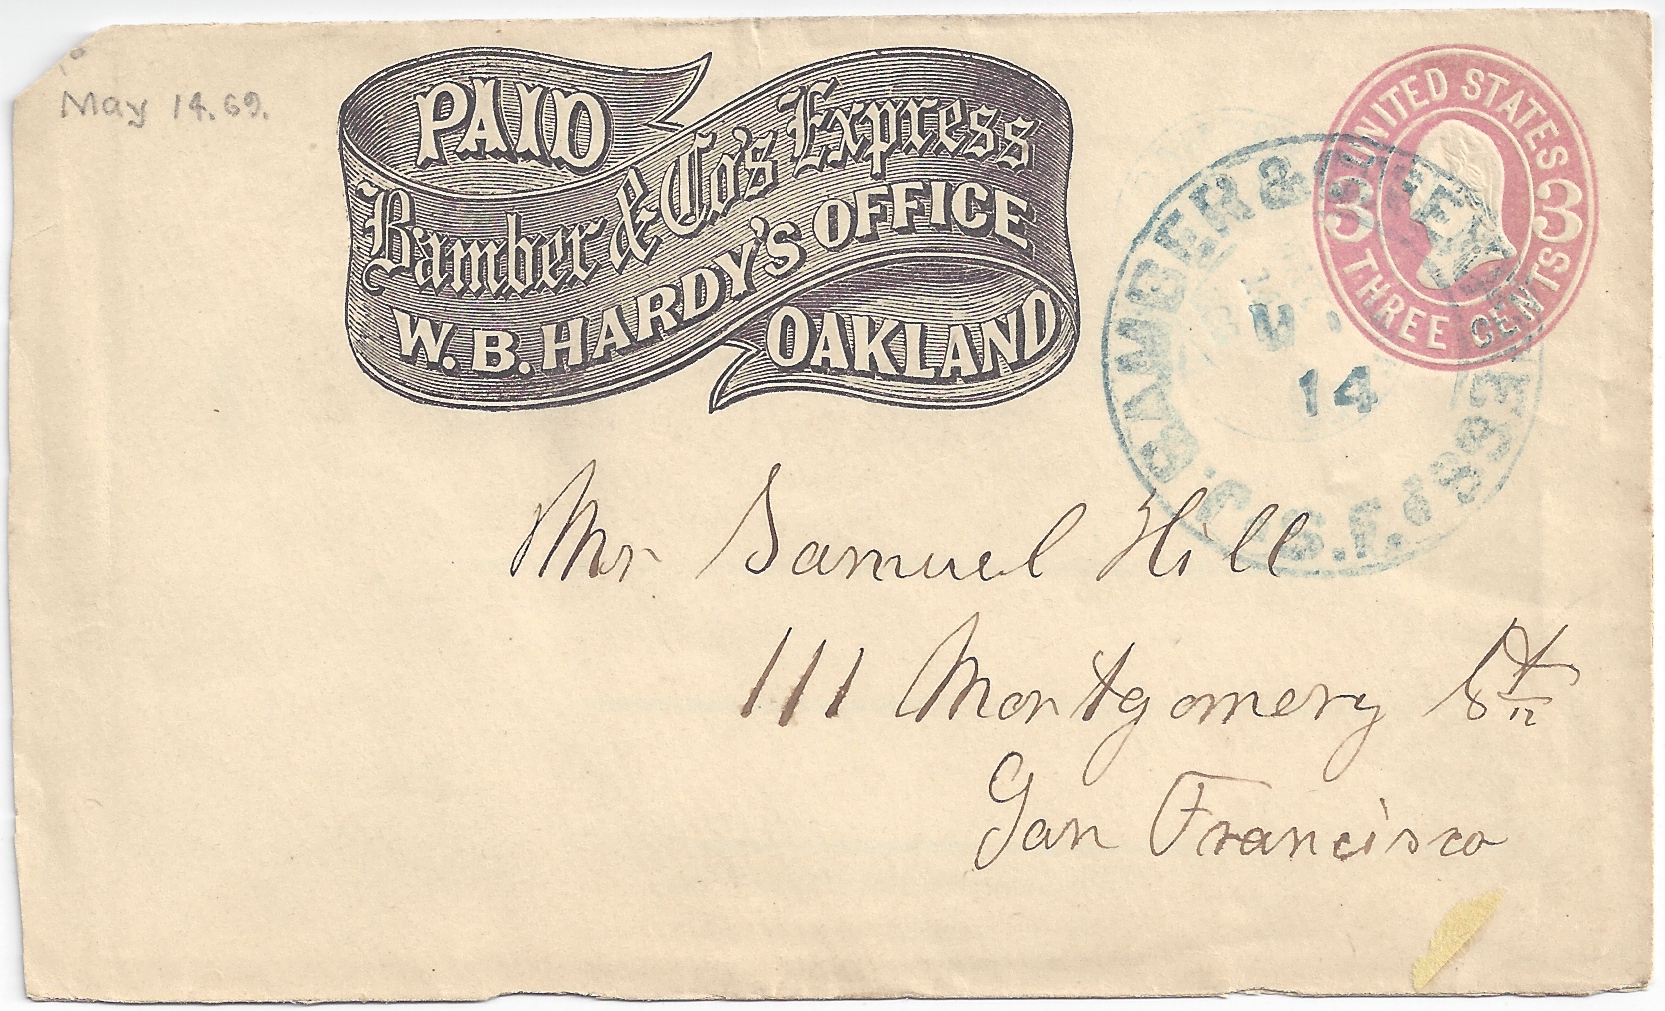 May 14.69.
PAID
Bamber & Co's Express
W.B. HARDY'S OFFICE
OAKLAND
UNITED STATES
3 3
THREE CENTS
BAMBER &
14
S.F.
Mr Samuel Hill
111 Montgomery St
San Francisco